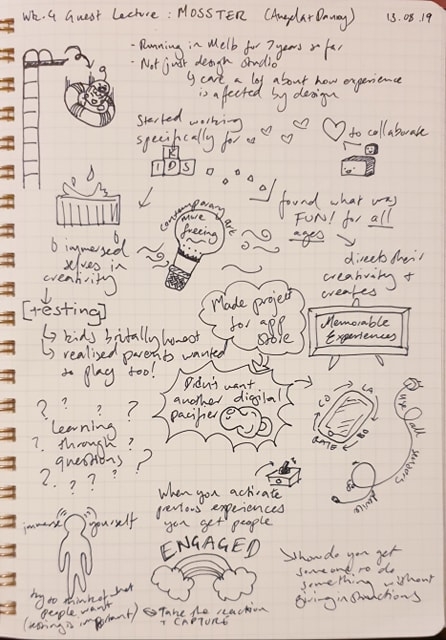 Wk.4 Guest Lecture : MOSSTER (Angela + Danny) 13.08.19
- Running in Melb for 7 years so far
- Not just design studio
↳ care a lot about how experience
is affected by design
Started working
specifically for
KIDS
♡ to collaborate
contemporary art
more
freeing
found what was
FUN! for all
ages
immersed
selves in
creativity
directs their
creativity +
creates
Memorable
Experiences
[testing]
↳ kids brutally honest
↳ realised parents wanted
to play too!
Made project
for app
store
Didn't want
another digital
pacifier
CO
LA
BO
RATE
use all sensors
device
? ? ?
Learning
through
questions
? ? ? ?
When you activate
previous experiences
you get people
ENGAGED
immerse yourself
try to think of what
people want
(testing is important)
Take the reaction
+ CAPTURE
↘ how do you get
someone to do
something without
giving instructions